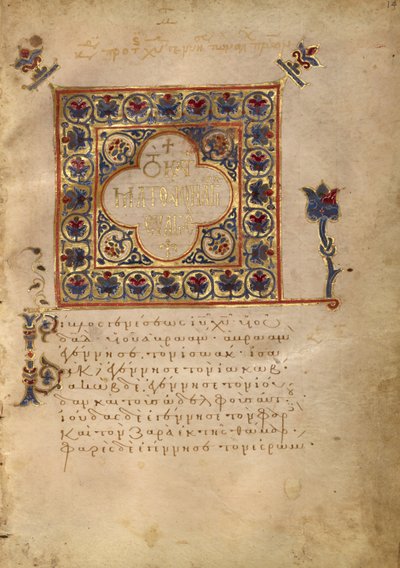 14
ΜΑΤΘΑΙΟΝ
ΕΥΑΓΓΕ
Βίβλος γενέσεως ἰῦ χῦ υἱοῦ
δαδ υἱοῦ ἀβραάμ· ἀβραὰμ
ἐγέννησε τὸν ἰσαάκ· ἰσαὰ
κ δὲ ἐγέννησε τὸν ἰακώβ·
ἰακὼβ δὲ ἐγέννησε τὸν ἰού
δαν καὶ τοὺς ἀδελφοὺς αὐτοῦ·
ἰούδας δὲ ἐγέννησε τὸν φαρὲς
καὶ τὸν ζαρὰ ἐκ τῆς θάμαρ·
φαρὲς δὲ ἐγέννησε τὸν ἐσρώμ·